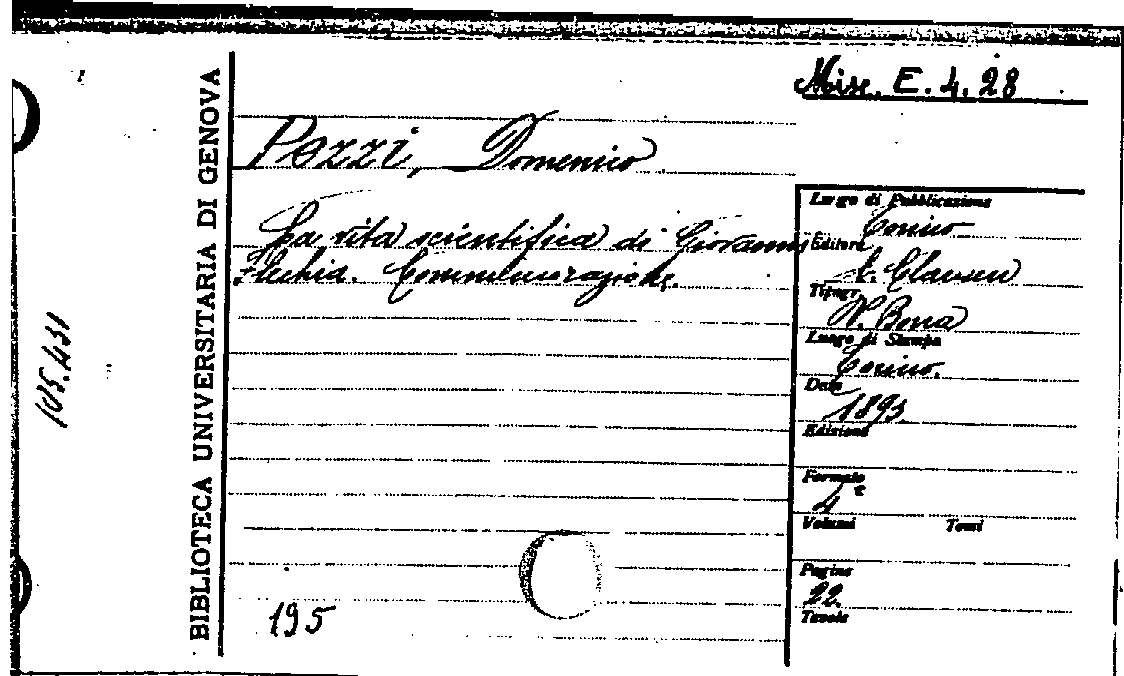 Misc. E. 4. 28
BIBLIOTECA UNIVERSITARIA DI GENOVA
105.431
Pezzi, Domenico
La vita scientifica di Giovanni
Flechia. Commemorazione.
Luogo di Pubblicazione
Torino
Editore
C. Clausen
Tipogr.
V. Bona
Luogo di Stampa
Torino.
Data
1893
Edizione
Formato
4°
Volumi Tomi
Pagine
22.
Tavole
195